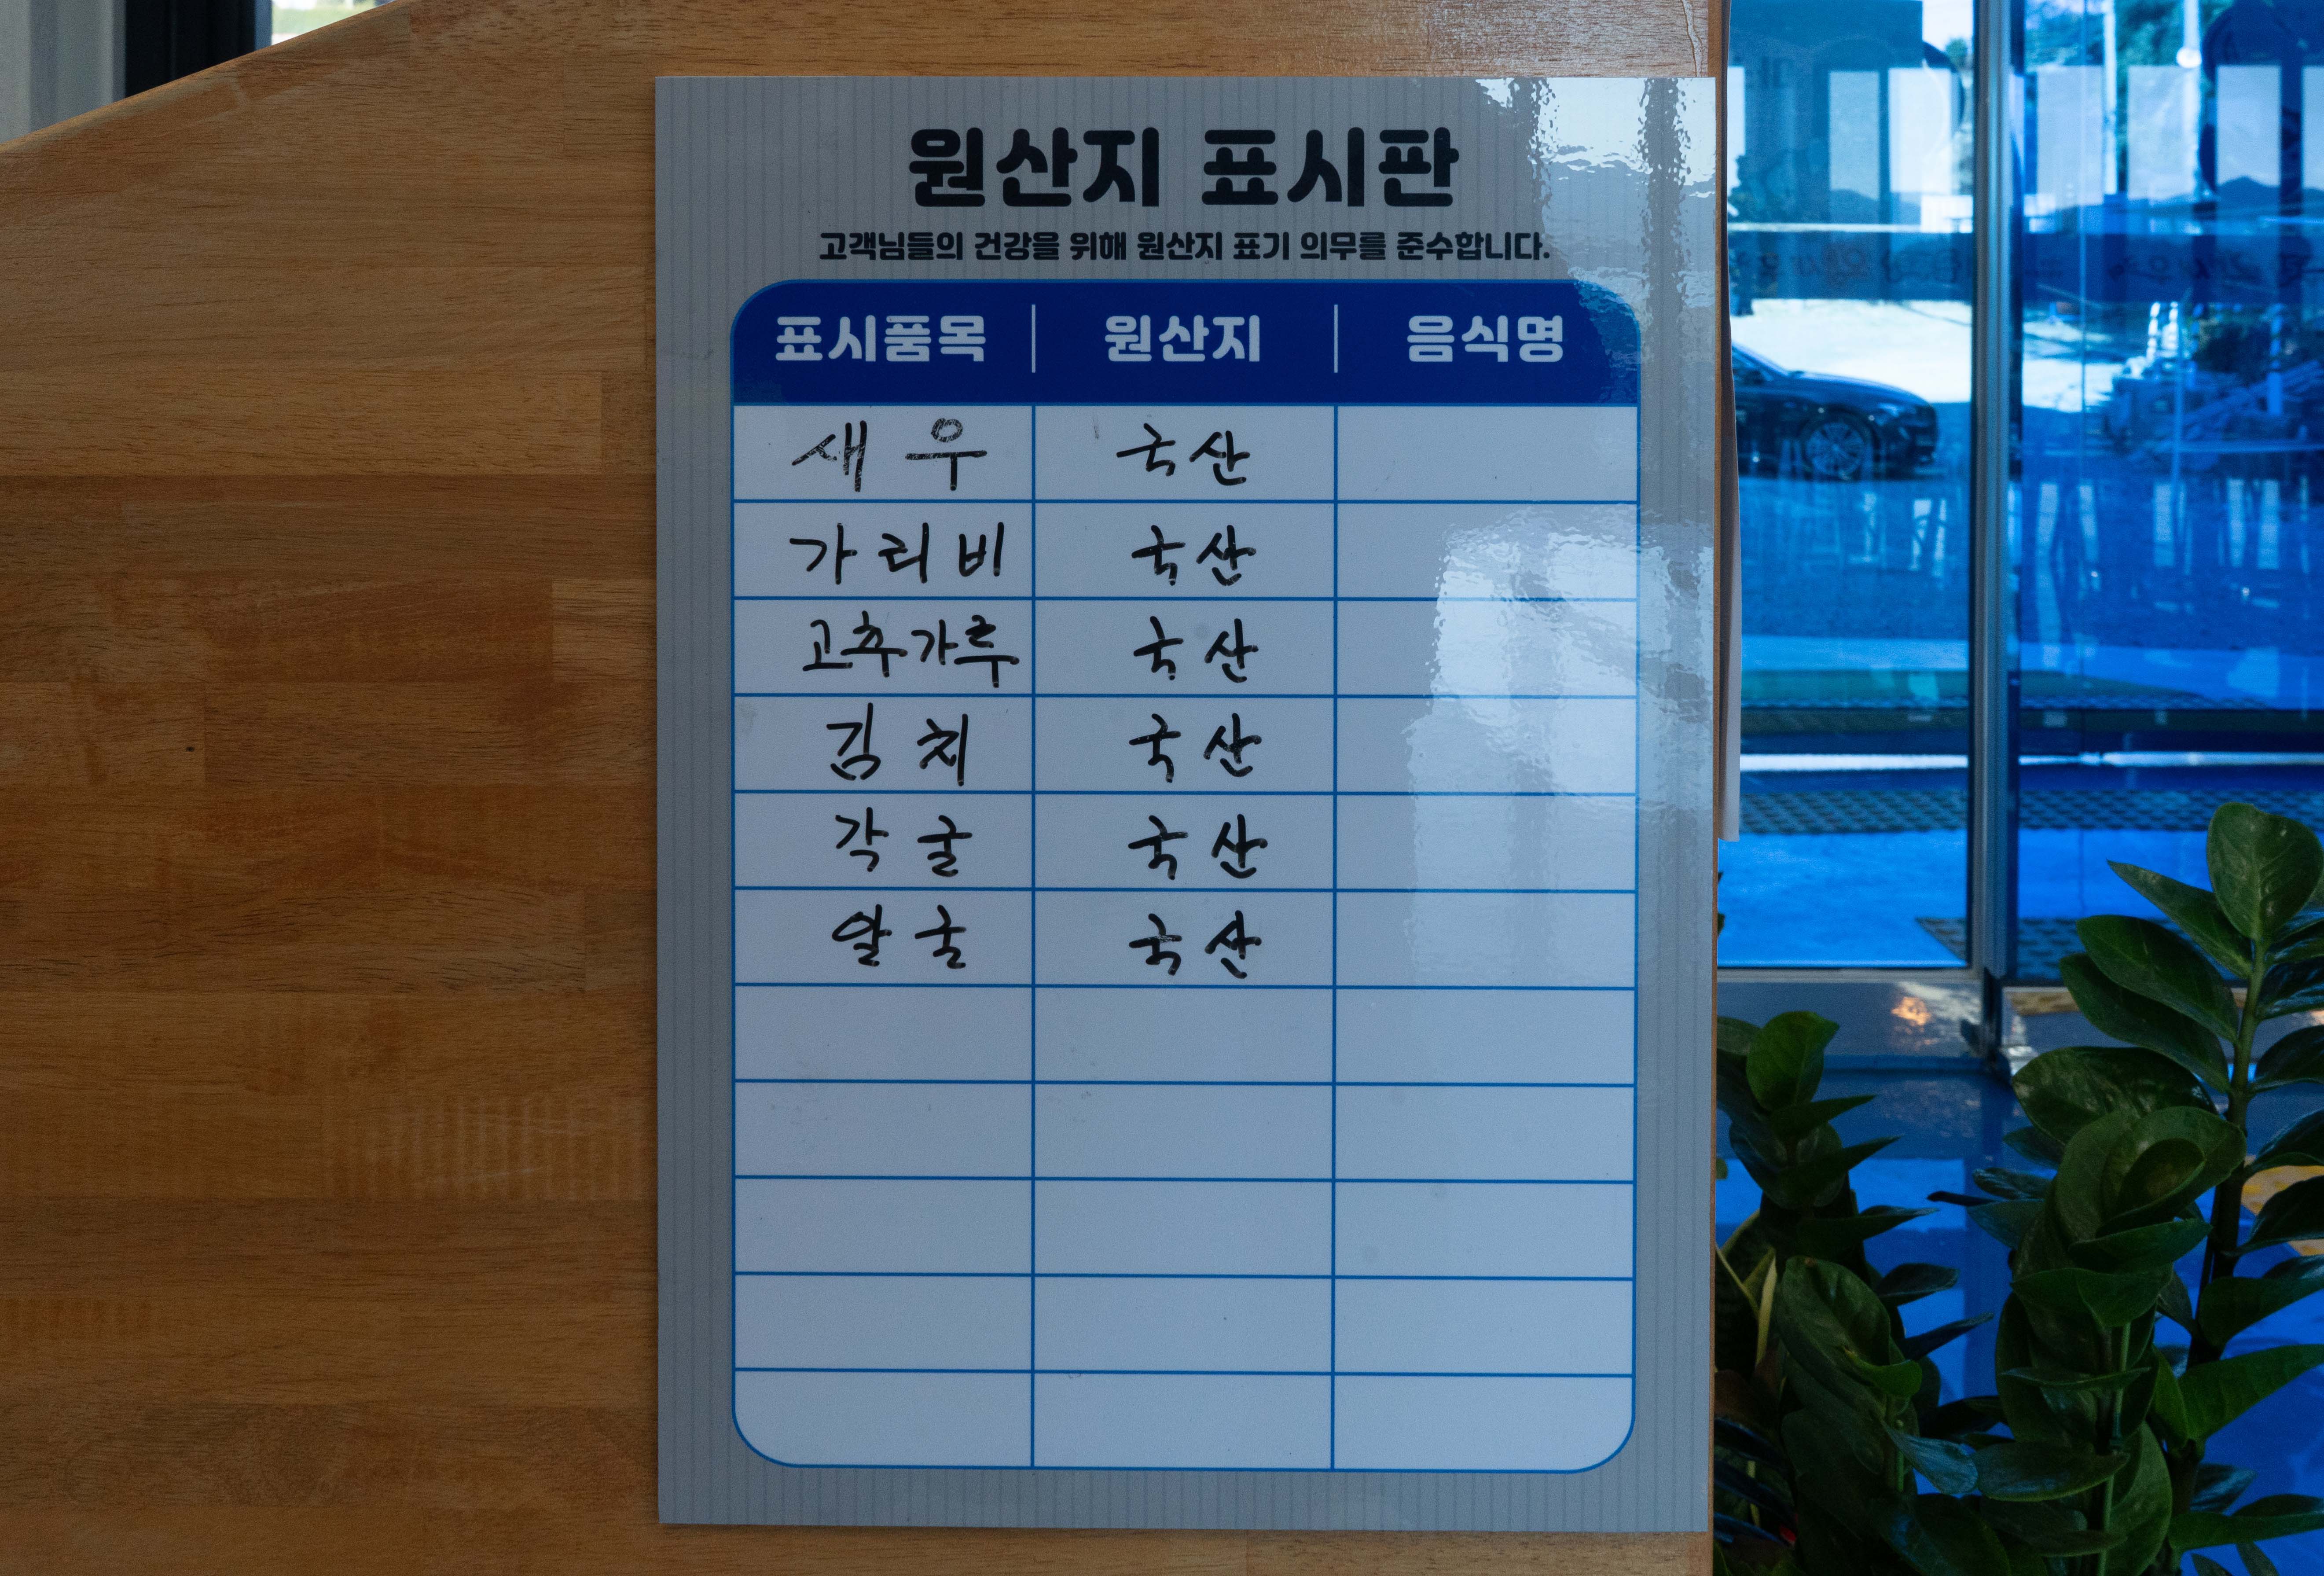 원산지 표시판
고객님들의 건강을 위해 원산지 표기 의무를 준수합니다.
표시품목 원산지 음식명
새우 국산
가리비 국산
고추가루 국산
김치 국산
각굴 국산
알굴 국산